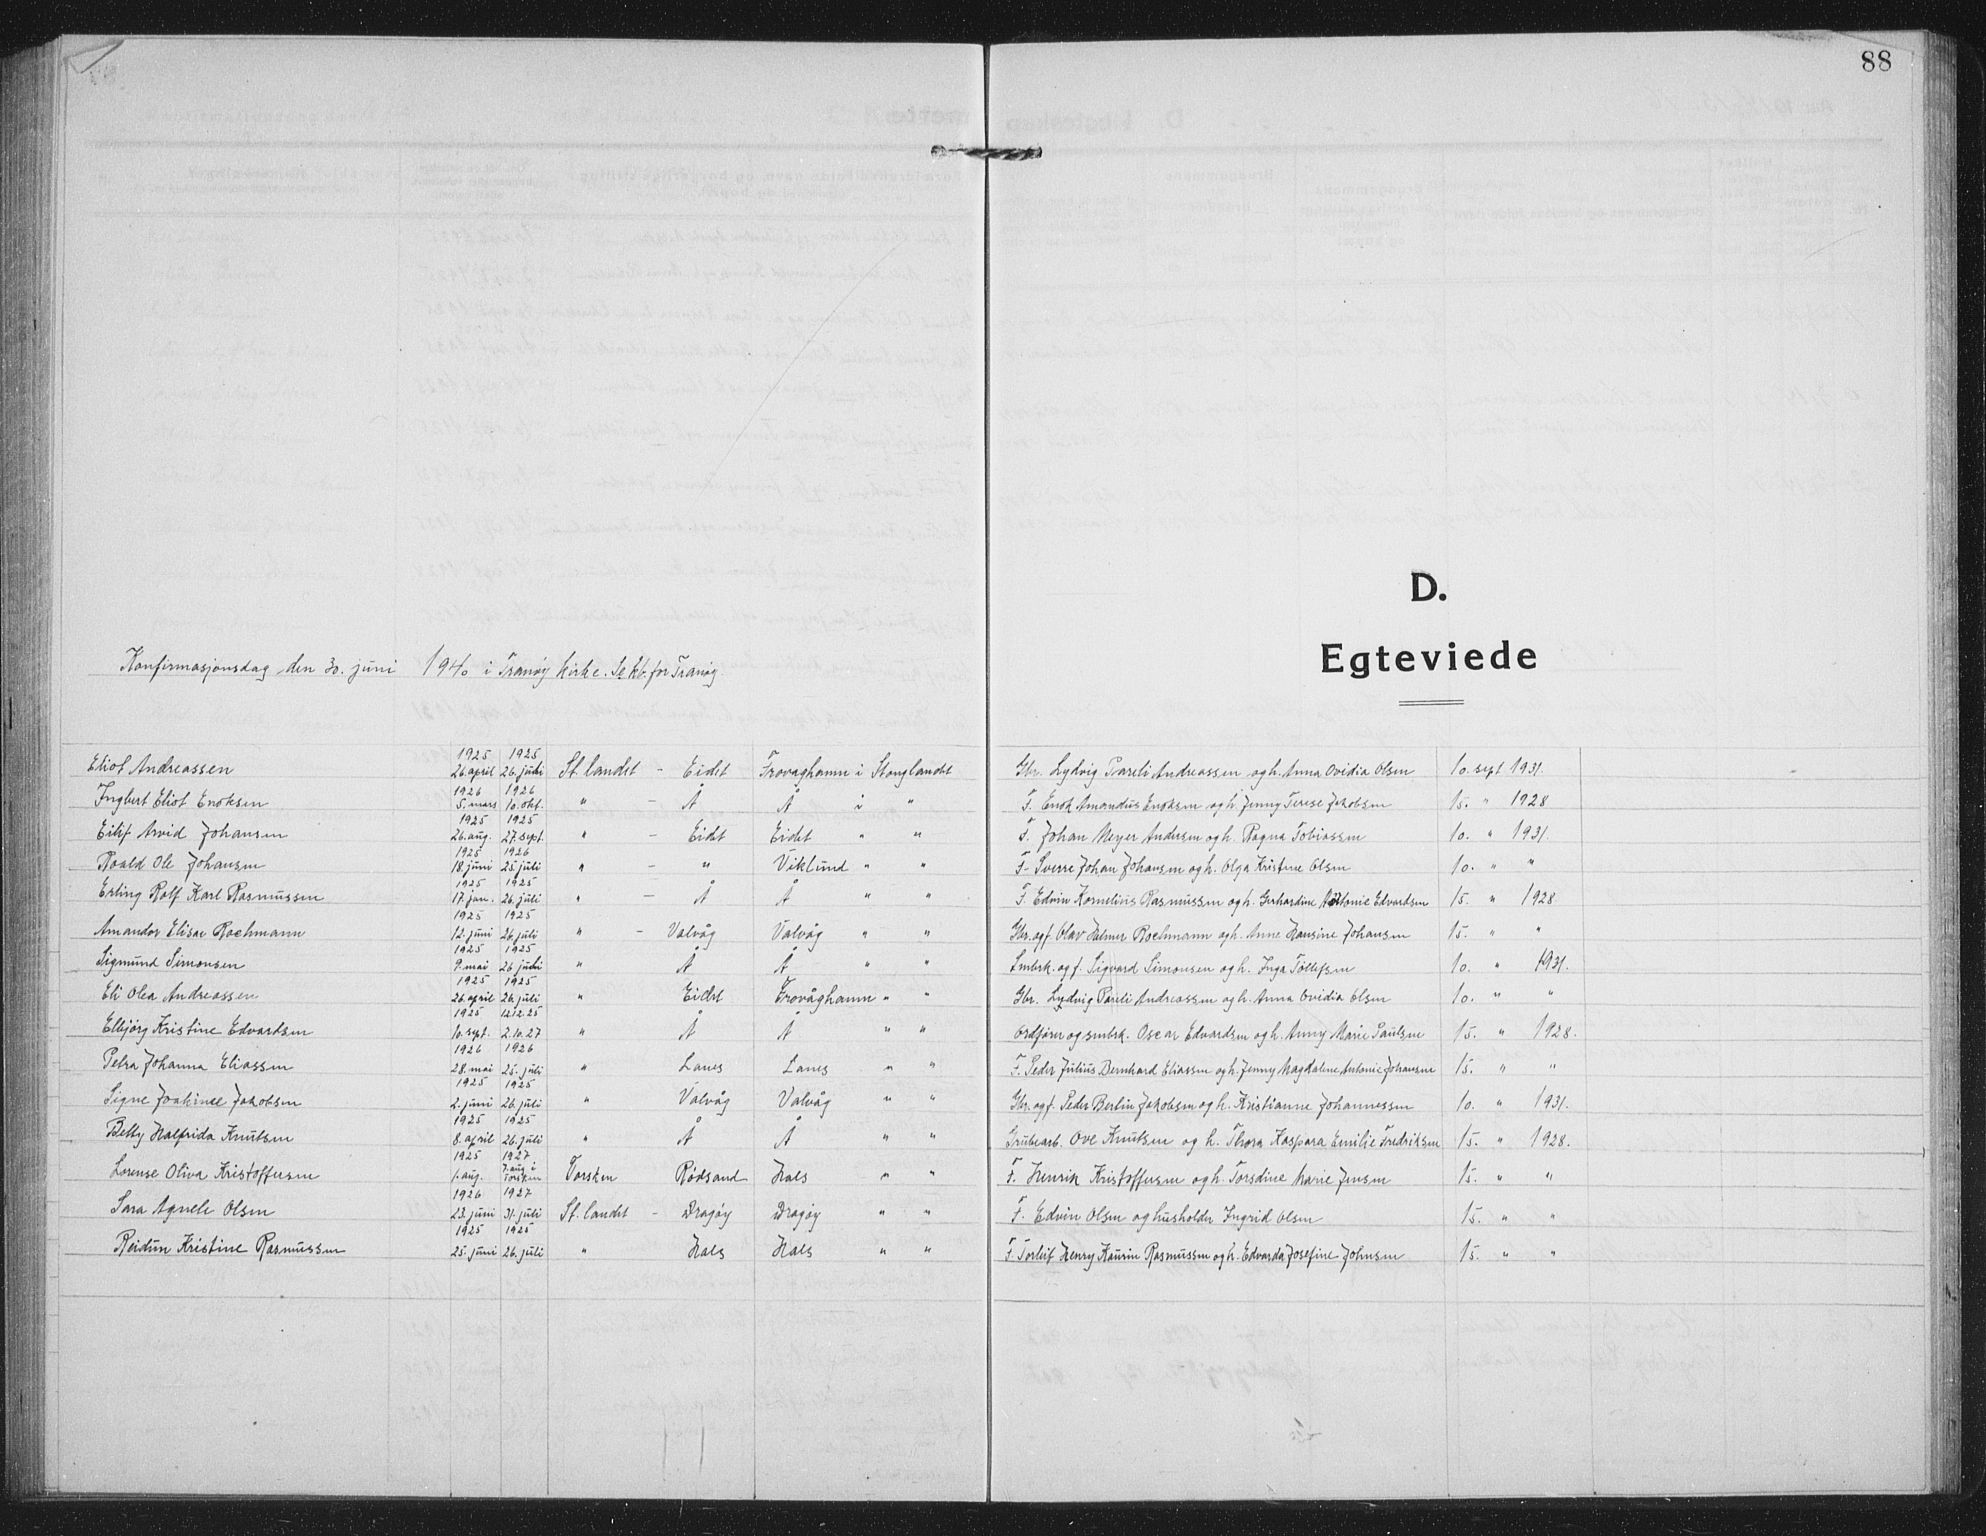 88
D.
Egteviede
Konfirmasjonsdag den 30. juni 1940 i Tranøy kirke. Se kb. for Tranøy.
Eliot Andreassen 1925 26. april 1925 26. juli St. landet - Eidet Frovaghamn i Stonglandet Gbr. Lydvig Pareli Andreassen og h. Anna Ovidia Olsen 10. sept 1931.
Ingbert Eliot Enoksen 1926 5. mars 1926 10. okt. " - Å Å i " F. Enok Amandus Enoksen og h. Jenny Terese Jakobsen 15. " 1928
Eilif Arvid Johansen 1925 26. aug. 1925 27. sept. " - Eidet Eidet " " F. Johan Meyer Andersen og h. Ragna Tobiassen 10. " 1931.
Roald Ole Johansen 1925 18. juni 1926 25. juli " - " Viklund " " F. Sverre Johan Johansen og h. Olga Kristine Olsen 10. " "
Erling Rolf Karl Rasmussen 1925 17. jan. 1925 26. juli " - Å Å " " F. Edvin Kornelius Rasmussen og h. Gerhardine Antonie Edvardsen 15. " 1928
Amandor Elisar Rochmann 1925 12. juni 1925 26. juli " - Valvåg Valvåg " " Gbr. og f. Olav Halmer Rochmann og h. Anne Hansine Johansen 15. " "
Sigmund Simonsen 1925 9. mai 1925 26 juli " Å Å " " Småbrk. og f. Sigvard Simonsen og h. Inga Tollefsen 10. " 1931.
Eli Olea Andreassen 1925 26. april 1925 26. juli " Eidet Frovåghamn " " Gbr. Lydvig Pareli Andreassen og h. Anna Ovidia Olsen 10. " "
Elbjörg Kristine Edvardsen 1925 10. sept. 12.12.25 2.10.27 " Å Å " " Ordfører og småbrk. Oscar Edvardsen og h. Anny Marie Paulsen 15. " 1928.
Petra Johanna Eliassen 1926 28. mai 1926 25. juli " Lanes Lanes " " F. Peder Julius Bernhard Eliassen og h. Jenny Magdalene Antonie Johansen 15. " "
Signe Joakinee Jakobsen 1925 2. juni 1925 26. juli " Valvåg Valvåg " " Gbr. og f. Peder Berlin Jakobsen og h. Kristianne Johannessen 10. " 1931.
Betty Halfrida Knutsen 1925 8. april 1925 26. juli " Å Å " " Grubearb. Ove Knutsen og h. Thora Kaspara Emilie Fredriksen 15. " 1928.
Lorense Oliva Kristoffersen 1925 1. aug. 1927 7. aug i Torsken Torsken Rødsand Hals " " F. Henrik Kristoffersen og h. Torsdine Marie Jensen 15. " "
Sara Agnele Olsen 1926 23. juni 1927 31. juli St. landet - Dragøy Dragøy " " F. Edvin Olsen og husholder Ingrid Olsen 15. " "
Reidun Kristine Rasmussen 1925 25. juni 1925 26. juli " Hals Hals " " F. Torleif Henry Kaurin Rasmussen og h. Edvarda Josefine Johnsen 15. " "